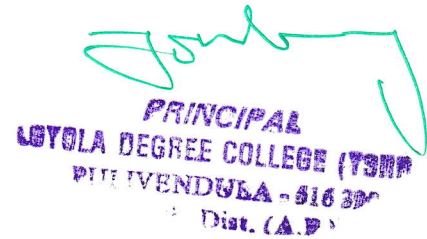 PRINCIPAL
LOYOLA DEGREE COLLEGE
PULIVENDULA - 516
Dist. (A.P.)